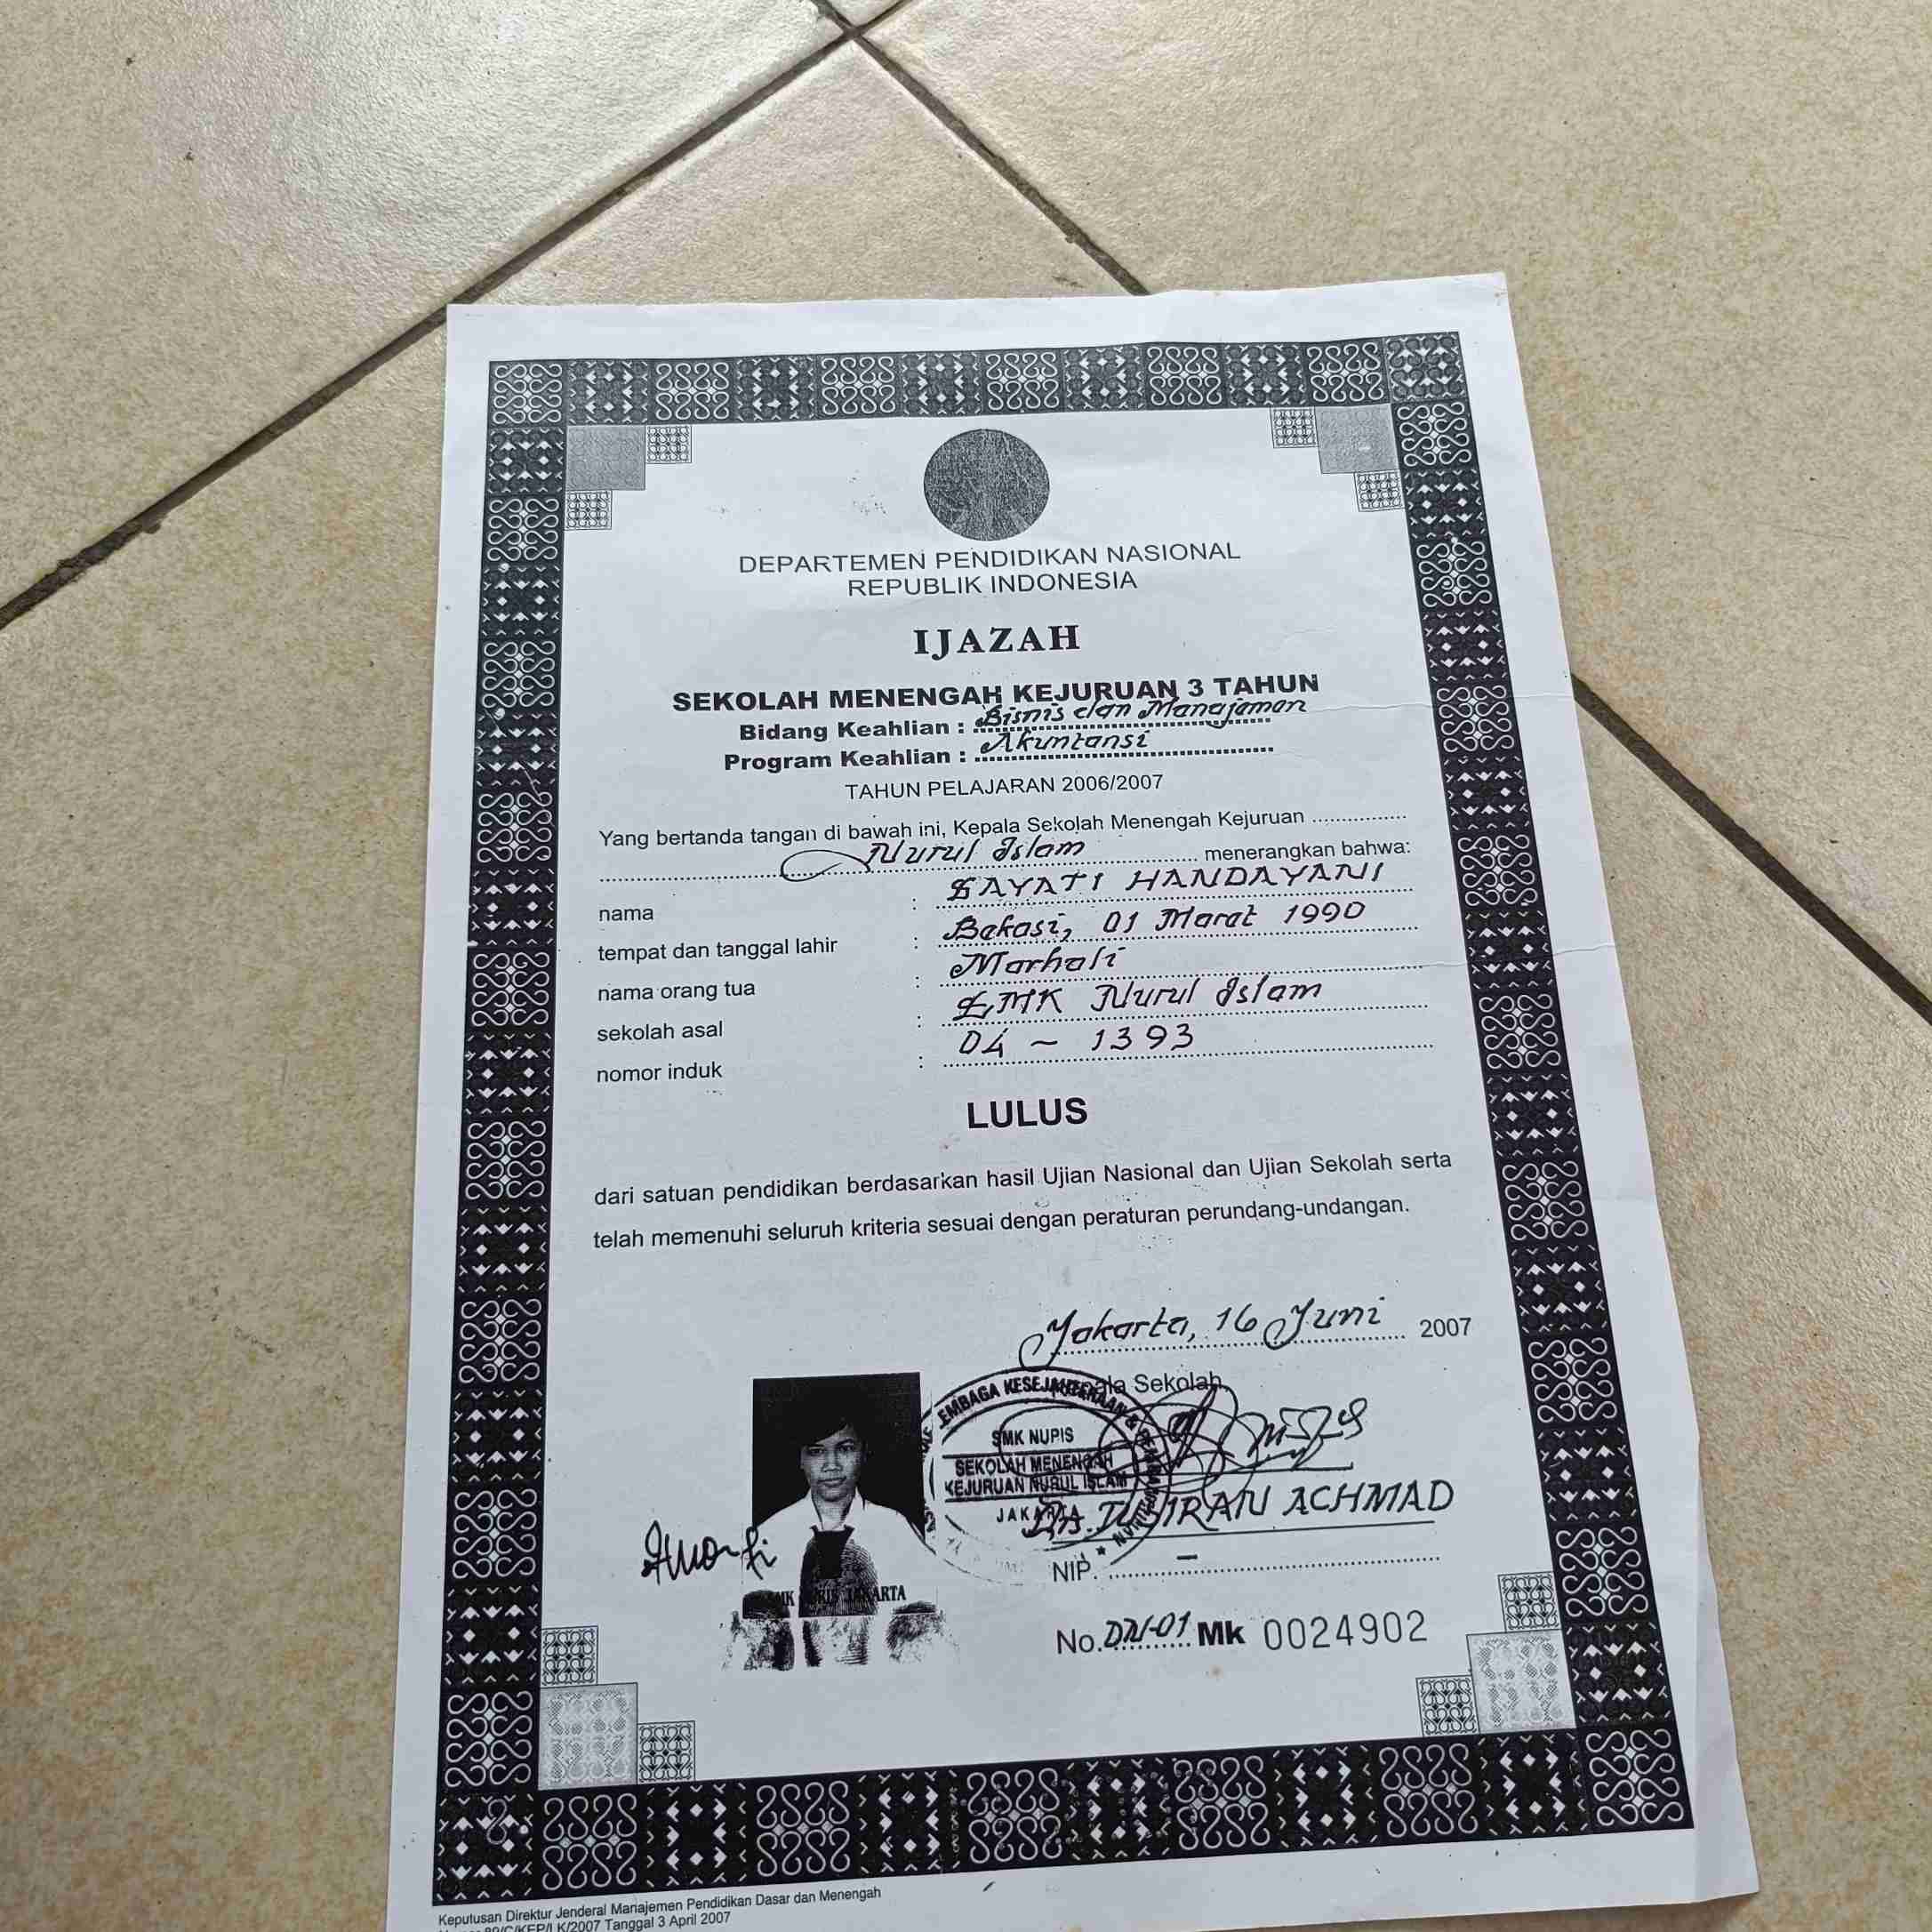 DEPARTEMEN PENDIDIKAN NASIONAL
REPUBLIK INDONESIA
IJAZAH
SEKOLAH MENENGAH KEJURUAN 3 TAHUN
Bidang Keahlian : Bisnis dan Manajemen
Program Keahlian : Akuntansi
TAHUN PELAJARAN 2006/2007
Yang bertanda tangan di bawah ini, Kepala Sekolah Menengah Kejuruan ...............
Nurul Islam menerangkan bahwa:
nama : SAYATI HANDAYANI
tempat dan tanggal lahir : Bekasi, 01 Maret 1990
nama orang tua : Marhali
sekolah asal : SMK Nurul Islam
nomor induk : 04 ~ 1393
LULUS
dari satuan pendidikan berdasarkan hasil Ujian Nasional dan Ujian Sekolah serta
telah memenuhi seluruh kriteria sesuai dengan peraturan perundang-undangan.
Jakarta, 16 Juni 2007
Sekolah,
LEMBAGA KESEJAHTERAAN &
SMK NUPIS
SEKOLAH MENENGAH
KEJURUAN NURUL ISLAM
JAKARTA
ACHMAD
NIP. –
JAKARTA
No. DN-01 Mk 0024902
Keputusan Direktur Jenderal Manajemen Pendidikan Dasar dan Menengah
/2007 Tanggal 3 April 2007